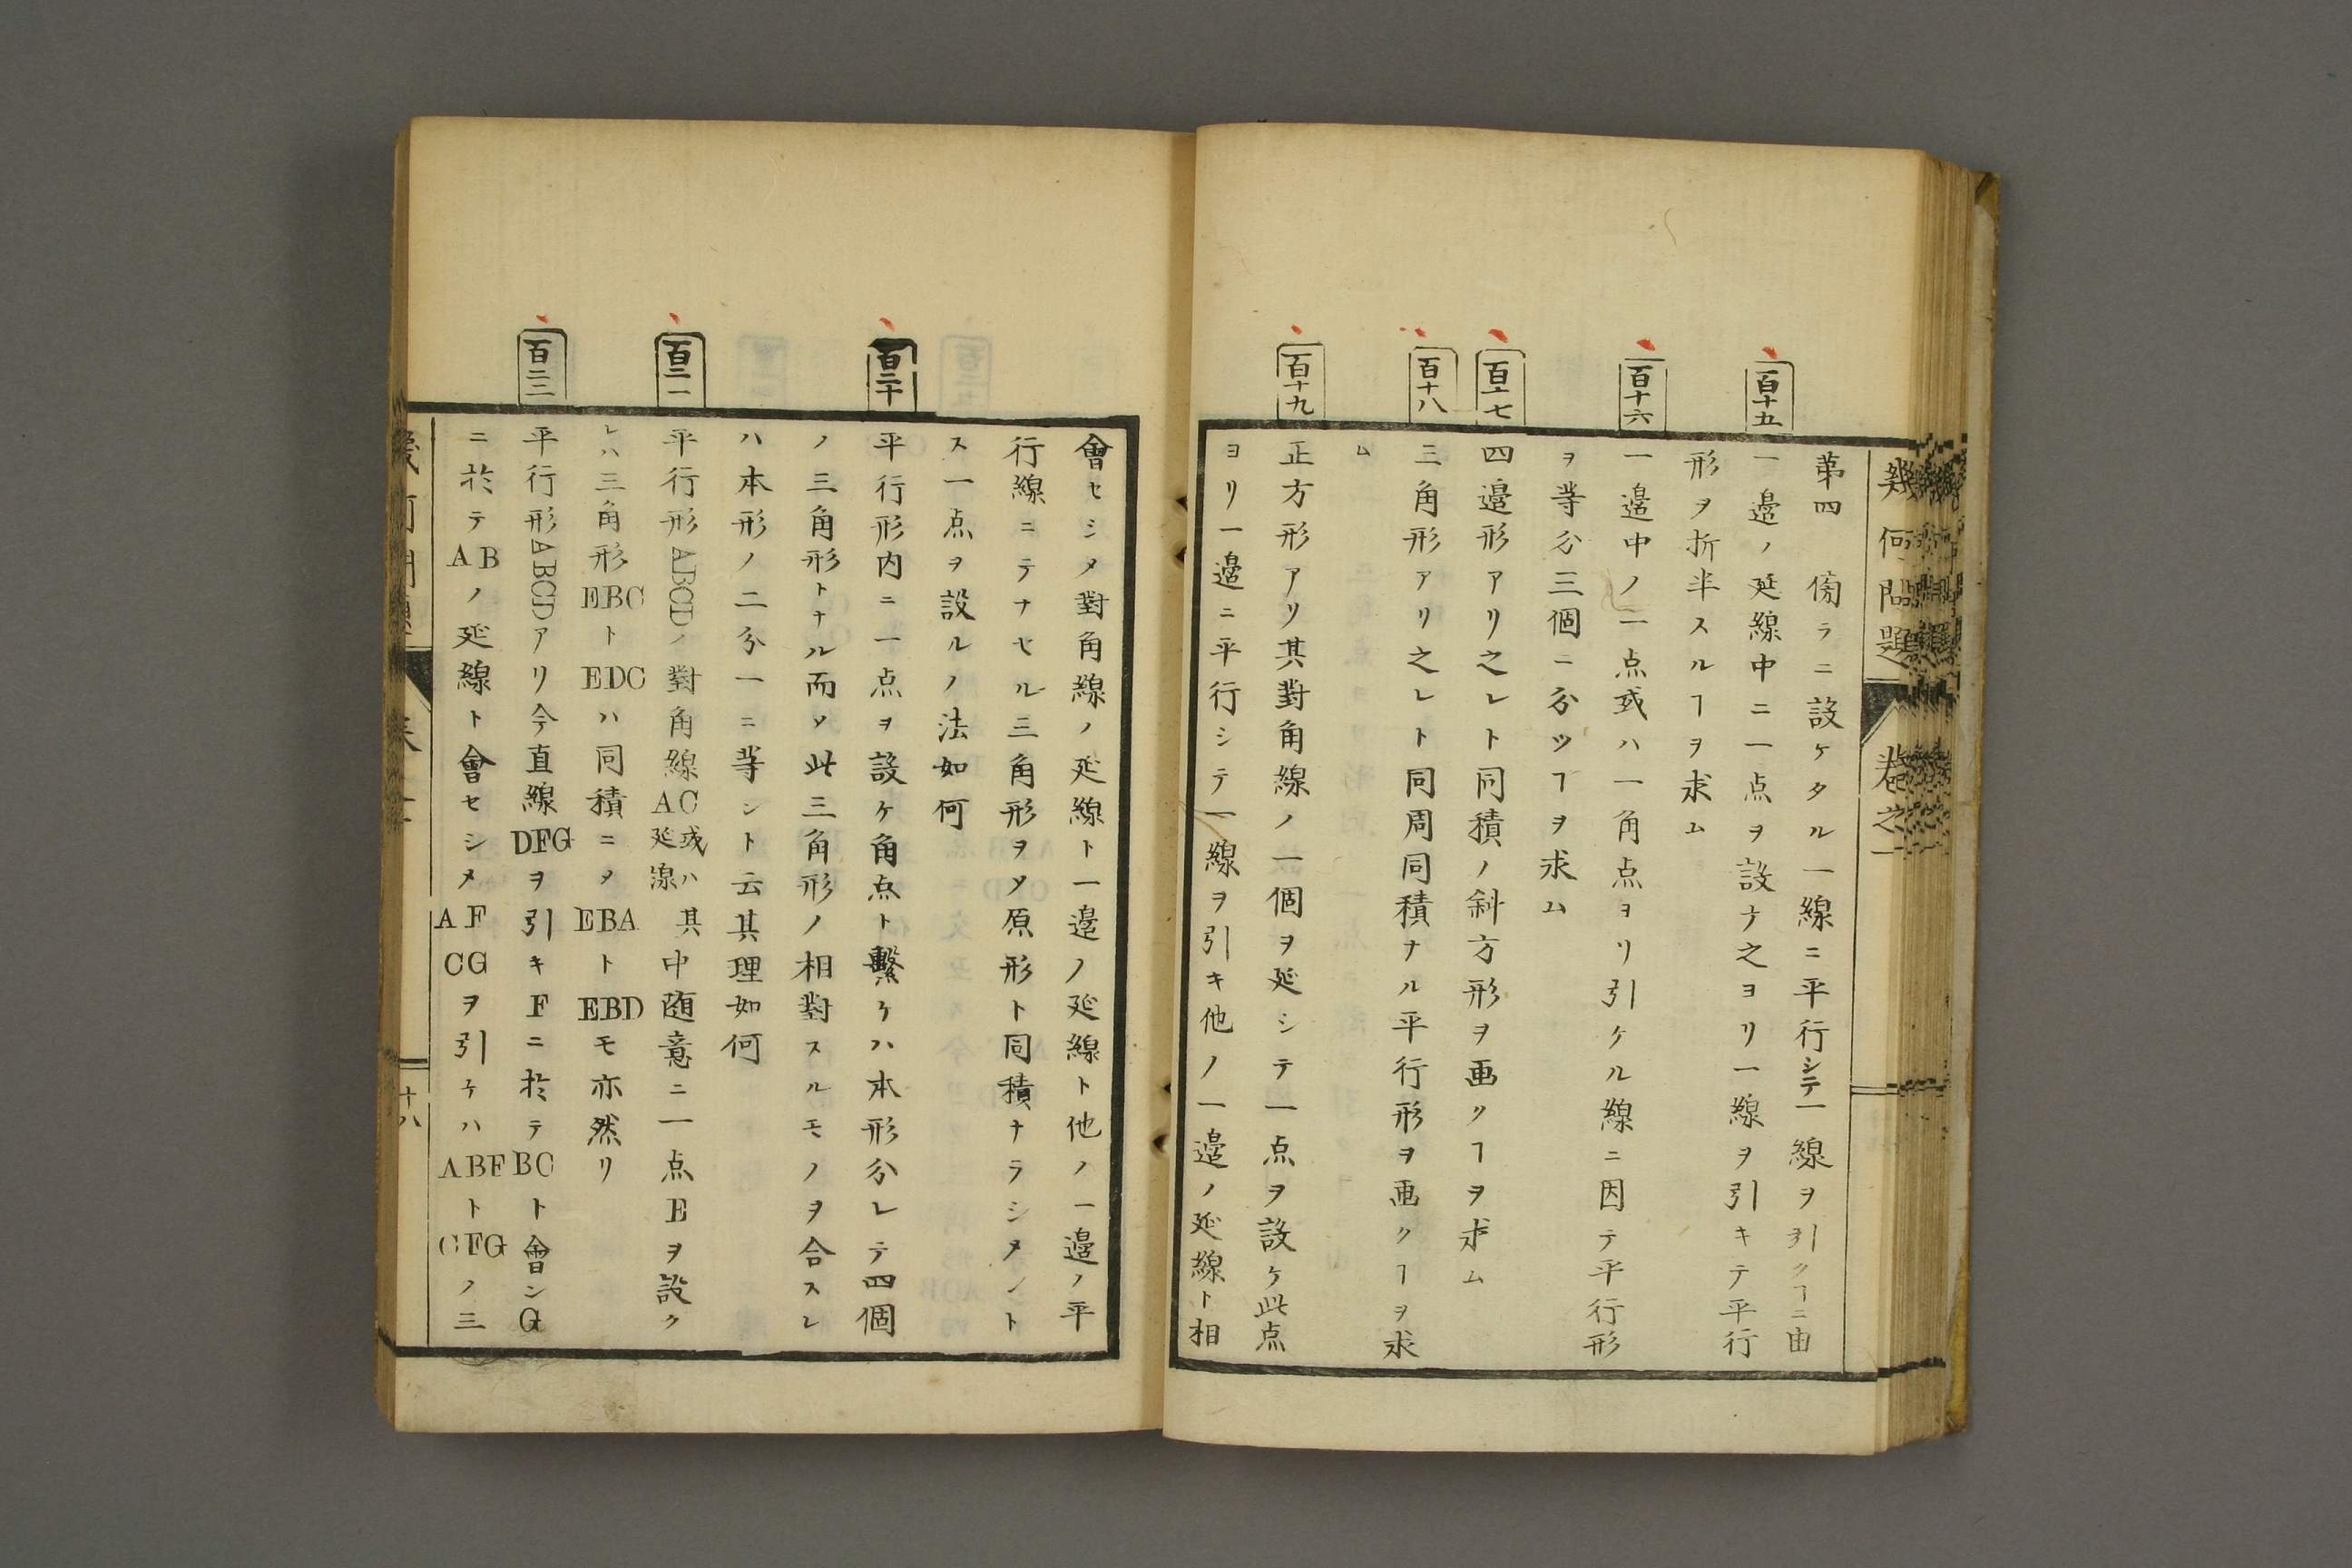 幾何問題
巻之一
第四 傍ラニ設ケタル一線ニ平行シテ一線ヲ引クヿニ由
百十五
一邉ノ延線中ニ一点ヲ設ケ之ヨリ一線ヲ引キテ平行
形ヲ折半スルヿヲ求ム
百十六
一邉中ノ一点或ハ一角点ヨリ引ケル線ニ因テ平行形
ヲ等分三個ニ分ツヿヲ求ム
百十七
四邉形アリ之レト同積ノ斜方形ヲ画クヿヲ求ム
百十八
三角形アリ之レト同周同積ナル平行形ヲ画クヿヲ求
ム
百十九
正方形アリ其對角線ノ一個ヲ延シテ一点ヲ設ケ此点
ヨリ一邉ニ平行シテ一線ヲ引キ他ノ一邉ノ延線ト相
會セシメ對角線ノ延線ト一邉ノ延線ト他ノ一邉ノ平
行線ニテナセル三角形ヲメ原形ト同積ナラシメント
ス一点ヲ設ルノ法如何
百二十
平行形内ニ一点ヲ設ケ角点ト繋ケハ本形分レテ四個
ノ三角形トナル而ソ此三角形ノ相對スルモノヲ合スレ
ハ本形ノ二分一ニ等シト云其理如何
百二一
平行形ABCDノ對角線AC或ハ延線其中随意ニ一点Eヲ設ク
レハ三角形EBCトEDCハ同積ニメEBAトEBDモ亦然リ
百二二
平行形ABCDアリ今直線DFGヲ引キFニ於テBCト會シG
ニ於テABノ延線ト會セシメAFCGヲ引ケハABFトCFGノ三
十八